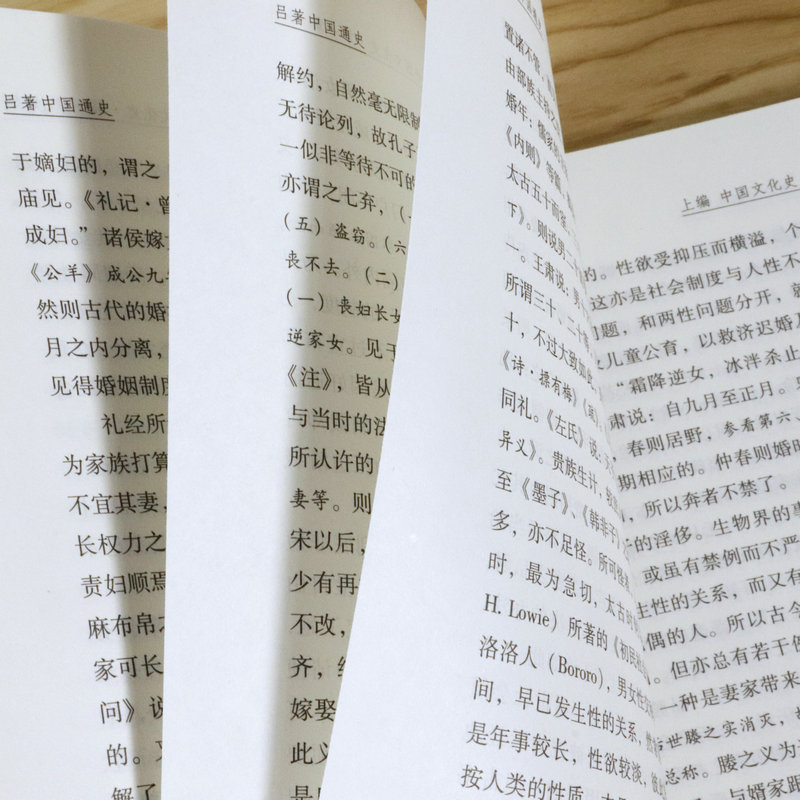 吕著中国通史
于嫡妇的，谓之
庙见。《礼记·曾
成妇。”诸侯嫁
《公羊》成公九年
然则古代的婚
月之内分离，
见得婚姻制度
礼经所
为家族打算
不宜其妻，
长权力之
责妇顺焉
麻布帛之
家可长
问》说
的。又
解了
吕著中国通史
解约，自然毫无限制
无待论列，故孔子
一似非等待不可的
亦谓之七弃，（一
（五）盗窃。（六
丧不去。（二）
（一）丧妇长女
逆家女。见于
《注》，皆从
与当时的法
所认许的
妻等。则
宋以后，
少有再
不改，
齐，终
嫁娶
此义
是
置诸不管，
由部族主持之
婚年；儒家的
《内则》等篇，
太古五十而室，
下》。则说男二
一。王肃说：男
所谓三十，二十
十，不过大致如此
《诗·摽有梅》
同礼。《左氏》说：
异义》。贵族生计，
至《墨子》、《韩非子》
多，亦不足怪。所可怪
时，最为急切，太古时
H. Lowie）所著的《初民社
洛洛人（Bororo），男女
间，早已发生性的关系，
是年事较长，性欲较淡，彼
按人类的性质，
上编 中国文化史
的。性欲受抑压而横溢，个
这亦是社会制度与人性不
问题，和两性问题分开，就
儿童公育，以救济迟婚
“霜降逆女，冰泮杀止
肃说：自九月至正月。
春则居野，参看第六、
期相应的。仲春则婚时
，所以奔者不禁了。
的淫侈。生物界的事
或虽有禁例而不严
生性的关系，而又有
偶的人。所以古今
。但亦总有若干
一种是妻家带来
世媵之实消灭，故
总称。媵之义为
与婿家跟